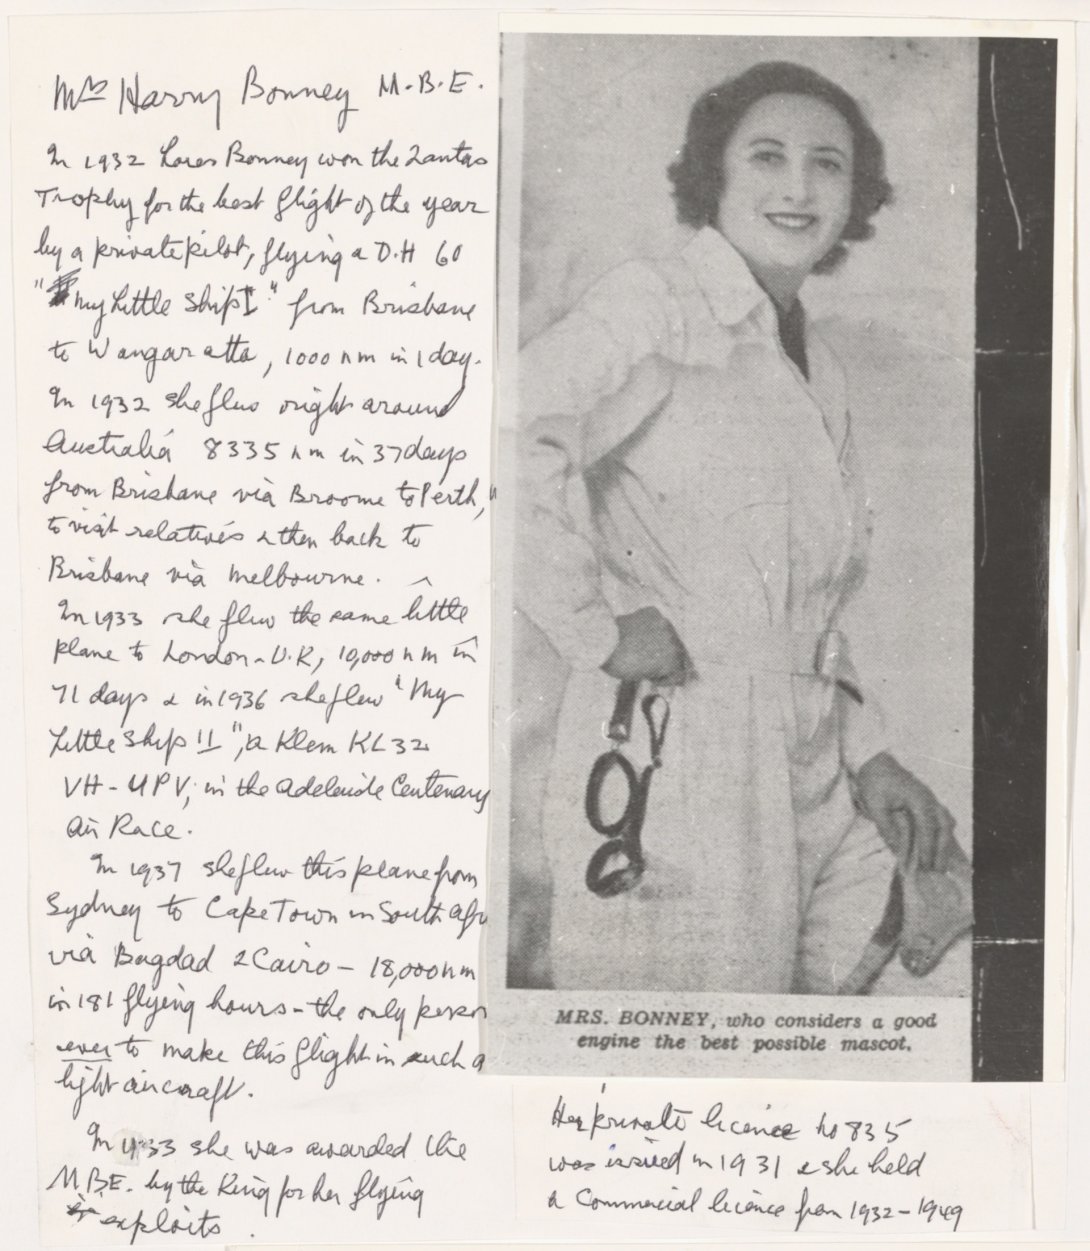 Mrs Harry Bonney M.B.E.
In 1932 Lores Bonney won the Qantas
Trophy for the best flight of the year
by a private pilot, flying a D.H 60
"my Little Ship I" from Brisbane
to Wangaratta, 1000 nm in 1 day.
In 1932 she flew right around
Australia 8335 nm in 37 days
from Brisbane via Broome to Perth,"
to visit relatives & then back to
Brisbane via Melbourne.
In 1933 she flew the same little
plane to London - U.K, 10,000 nm in
71 days & in 1936 she flew "My
Little Ship II", a Klem KL32
VH-UPV, in the Adelaide Centenary
Air Race.
In 1937 she flew this plane from
Sydney to Cape Town in South Afr
via Bagdad & Cairo - 18,000 nm
in 181 flying hours - the only person
ever to make this flight in such a
light aircraft.
In 1933 she was awarded the
M.B.E. by the King for her flying
exploits.
MRS. BONNEY, who considers a good
engine the best possible mascot.
Her private licence no 835
was issued in 1931 & she held
a Commercial licence from 1932-1949